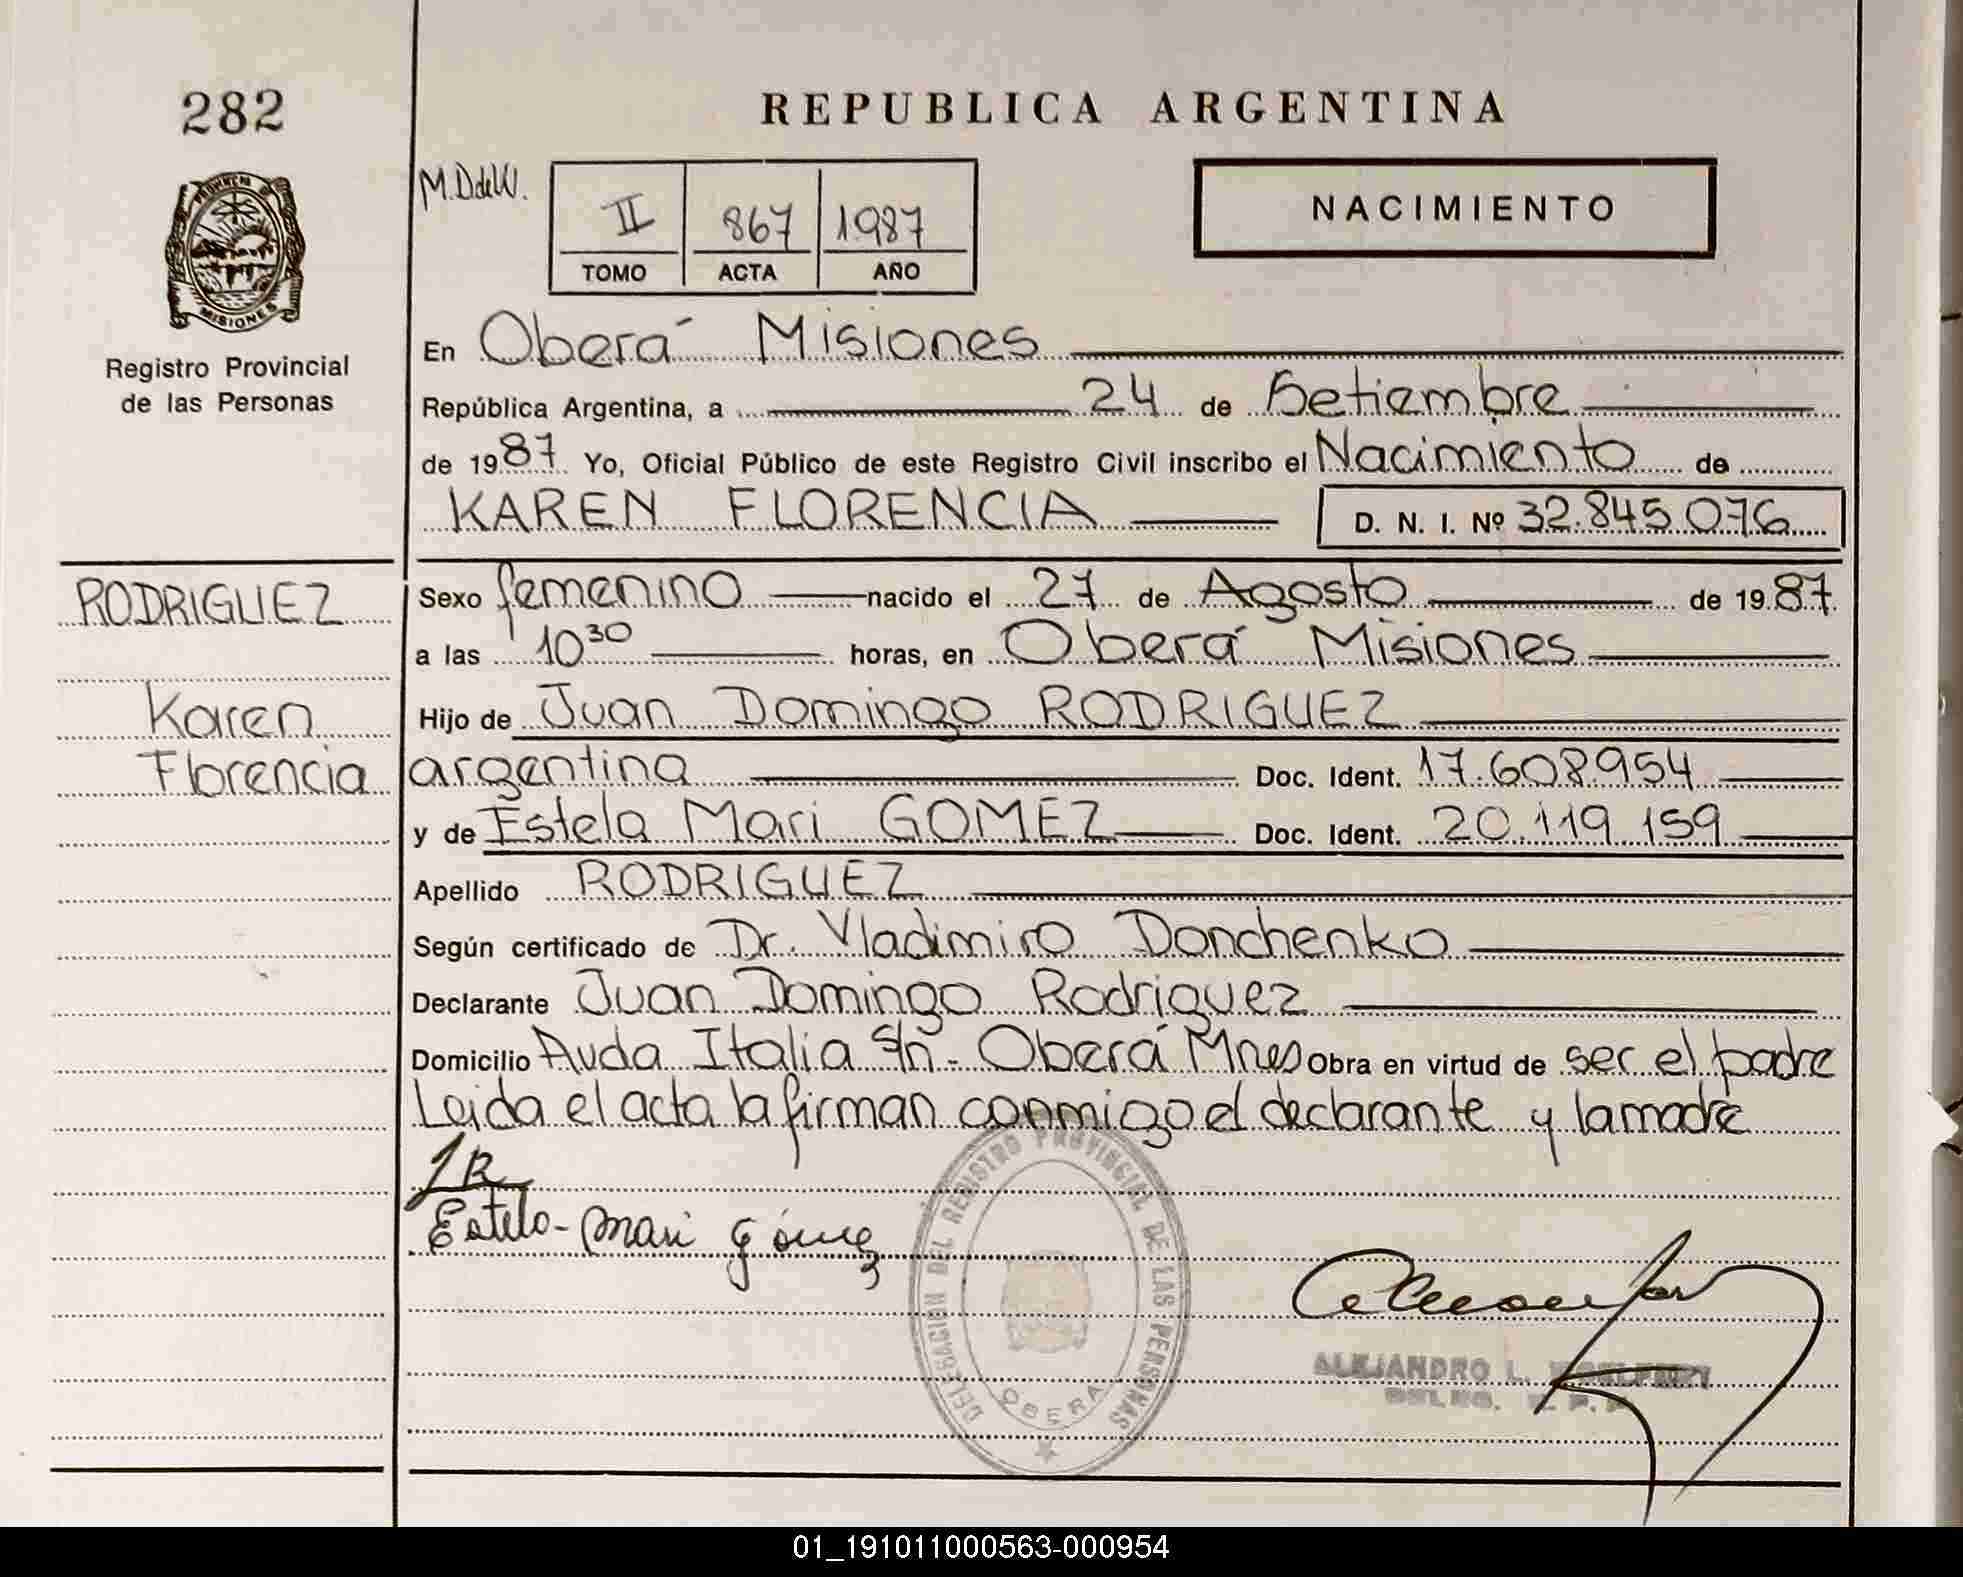 282
REPUBLICA ARGENTINA
PROVINCIA DE
MISIONES
Registro Provincial
de las Personas
M.D.deW.
II 867 1987
TOMO ACTA AÑO
NACIMIENTO
En Oberá Misiones
República Argentina, a 24 de Setiembre
de 1987 Yo, Oficial Público de este Registro Civil inscribo el Nacimiento de
KAREN FLORENCIA D. N. I. Nº 32.845.076
RODRIGUEZ
Karen
Florencia
Sexo femenino nacido el 27 de Agosto de 1987.
a las 10 30 horas, en Oberá Misiones
Hijo de Juan Domingo RODRIGUEZ
argentina Doc. Ident. 17.608.954
y de Estela Mari GOMEZ Doc. Ident. 20.119.159
Apellido RODRIGUEZ
Según certificado de Dr. Vladimiro Donchenko
Declarante Juan Domingo Rodriguez
Domicilio Avda Italia s/n.- Oberá Mnes Obra en virtud de ser el padre
Leida el acta la firman conmigo el declarante y la madre
JR
Estela-Mari Gómez
DELEGACION DEL REGISTRO PROVINCIAL DE LAS PERSONAS
OBERA
ALEJANDRO L.
01_191011000563-000954